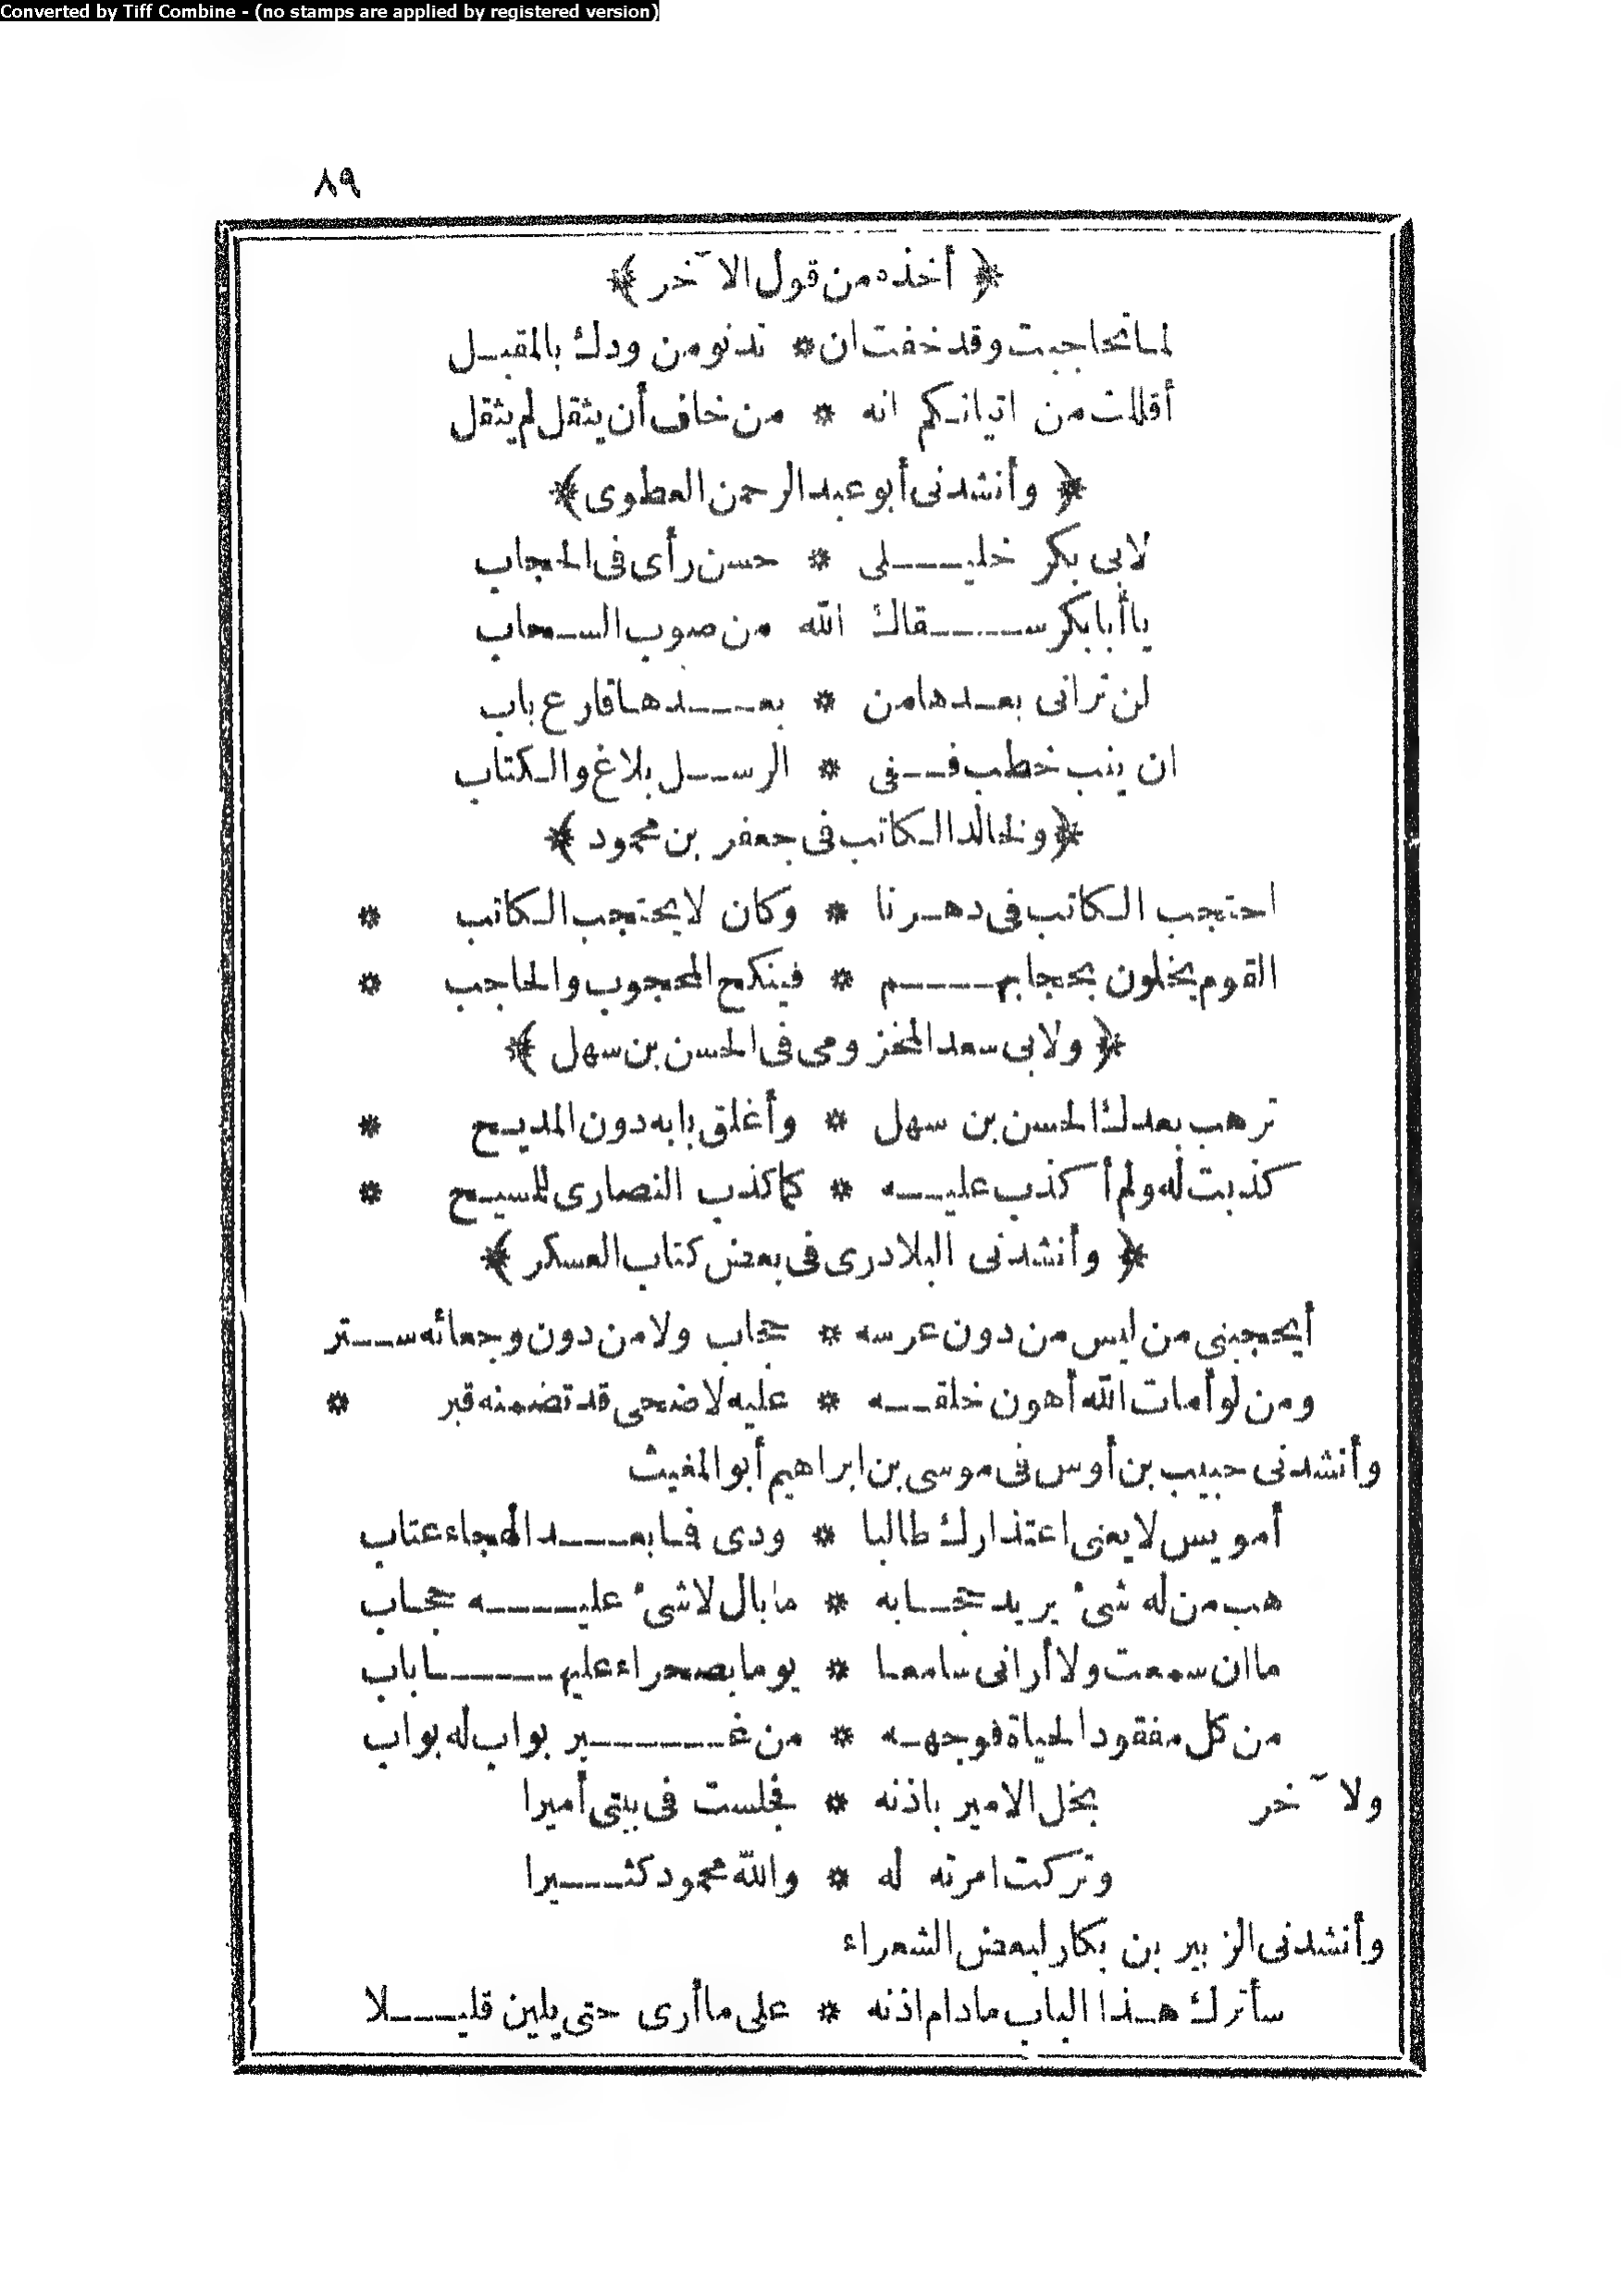 Converted by Tiff Combine - (no stamps are applied by registered version)
٨٩
﴿ أخذه من قول الآخر ﴾
لما تحاجبت وقد خفت ان * تدنو من ودك بالمقبل
أقللت من اتيانكم انه * من خاف أن يثقل لم يثقل
﴿ وأنشدنى أبو عبد الرحمن العطوى ﴾
لابى بكر خليلى * حسن رأى فى الحجاب
ياأبابكر سقاك الله من صوب السحاب
لن ترانى بعدها من * بعدها قارع باب
ان ينب خطب ففى * الرسل بلاغ والكتاب
﴿ ولخالد الكاتب فى جعفر بن محمود ﴾
احتجب الكاتب فى دهرنا * وكان لا يحتجب الكاتب *
القوم يخلون بحجابهم * فينكح المحجوب والحاجب *
﴿ ولابى سعد المخزومى فى الحسن بن سهل ﴾
ترهب بعدك الحسن بن سهل * وأغلق بابه دون المديح *
كذبت له ولم أكذب عليه * كما كذب النصارى للمسيح *
﴿ وأنشدنى البلادرى فى بعض كتاب العسكر ﴾
أيحجبنى من ليس من دون عرسه * حجاب ولا من دون وجعائه ستر
ومن لو أمات الله أهون خلقه * عليه لاضحى قد تضمنه قبر *
وأنشدنى حبيب بن أوس فى موسى بن ابراهيم أبو المغيث
أمويس لا يغنى اعتذارك طالبا * ودى فما بعد الهجاء عتاب
هب من له شئ يريد حجابه * ما بال لا شئ عليه حجاب
ما ان سمعت ولا أرانى سامعا * يوما بصحراء عليها باب
من كل مفقود الحياة فوجهه * من غير بواب له بواب
ولآخر بخل الامير باذنه * فجلست فى بيتى أميرا
وتركت امرته له * والله محمود كثيرا
وأنشدنى الزبير بن بكار لبعض الشعراء
سأترك هذا الباب مادام اذنه * على ما أرى حتى يلين قليلا